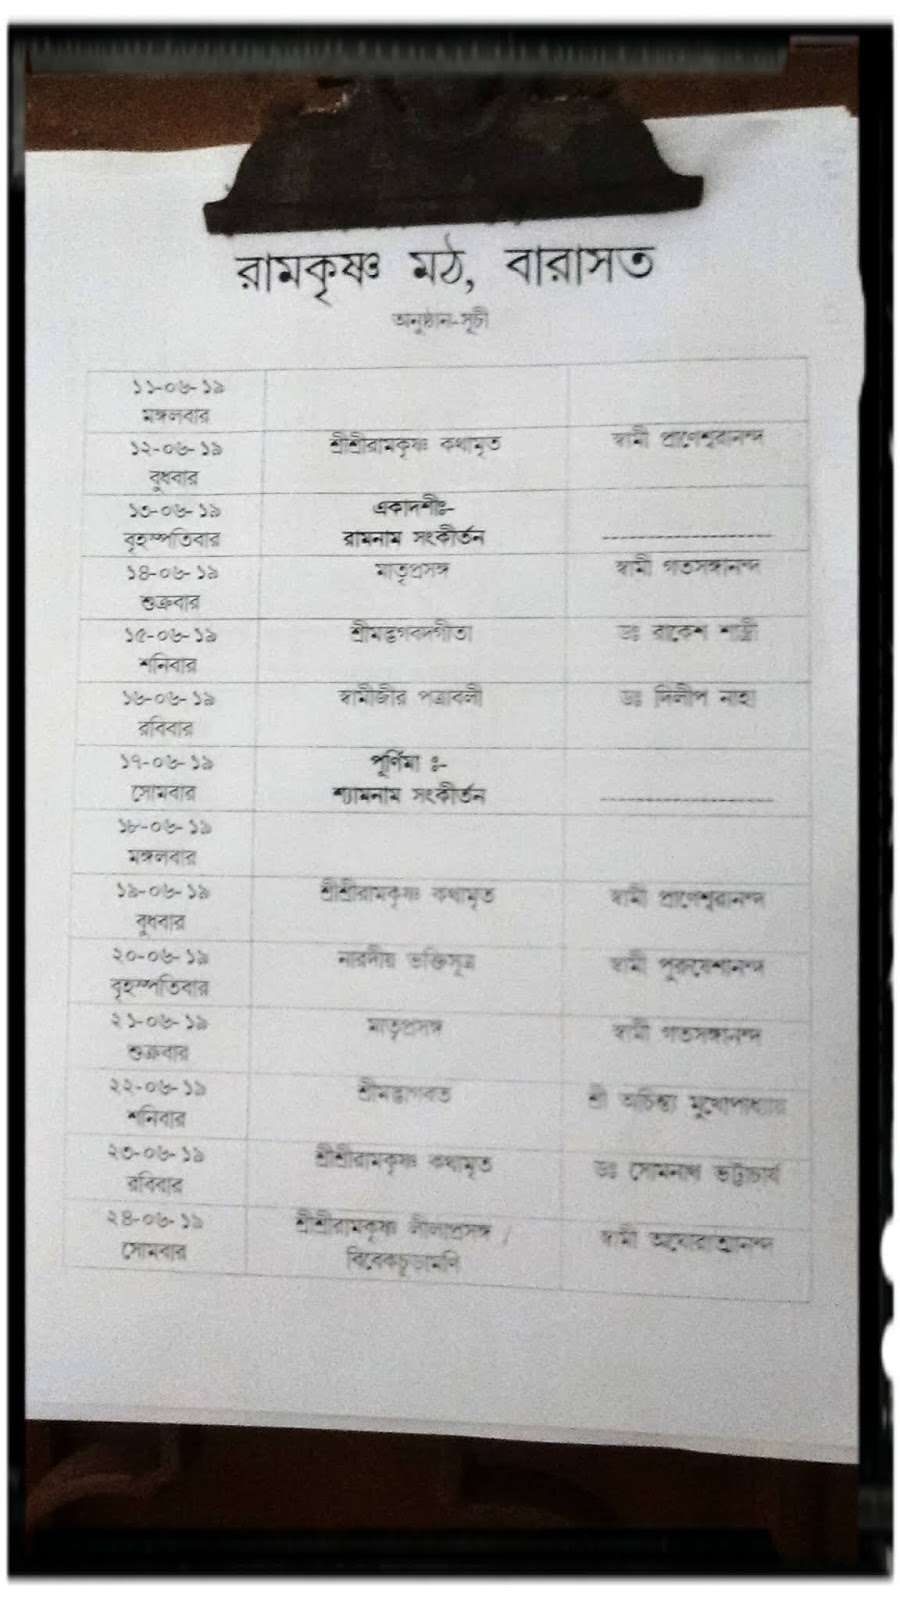 রামকৃষ্ণ মঠ, বারাসত
অনুষ্ঠান-সূচী
১১-০৬-১৯
মঙ্গলবার
১২-০৬-১৯ শ্রীশ্রীরামকৃষ্ণ কথামৃত স্বামী প্রাণেশ্বরানন্দ
বুধবার
১৩-০৬-১৯ একাদশীঃ-
বৃহস্পতিবার রামনাম সংকীর্তন --------------------
১৪-০৬-১৯ মাতৃপ্রসঙ্গ স্বামী গতসঙ্গানন্দ
শুক্রবার
১৫-০৬-১৯ শ্রীমদ্ভগবদগীতা ডঃ রাকেশ শাস্ত্রী
শনিবার
১৬-০৬-১৯ স্বামীজীর পত্রাবলী ডঃ দিলীপ নাহা
রবিবার
১৭-০৬-১৯ পূর্ণিমা ঃ-
সোমবার শ্যামনাম সংকীর্তন --------------------
১৮-০৬-১৯
মঙ্গলবার
১৯-০৬-১৯ শ্রীশ্রীরামকৃষ্ণ কথামৃত স্বামী প্রাণেশ্বরানন্দ
বুধবার
২০-০৬-১৯ নারদীয় ভক্তিসূত্র স্বামী
বৃহস্পতিবার
২১-০৬-১৯ মাতৃপ্রসঙ্গ স্বামী গতসঙ্গানন্দ
শুক্রবার
২২-০৬-১৯ শ্রীমদ্ভাগবত শ্রী অচিন্ত্য মুখোপাধ্যায়
শনিবার
২৩-০৬-১৯ শ্রীশ্রীরামকৃষ্ণ কথামৃত ডঃ সোমনাথ ভট্টাচার্য
রবিবার
২৪-০৬-১৯ শ্রীশ্রীরামকৃষ্ণ লীলাপ্রসঙ্গ / স্বামী
সোমবার বিবেকচূড়ামণি